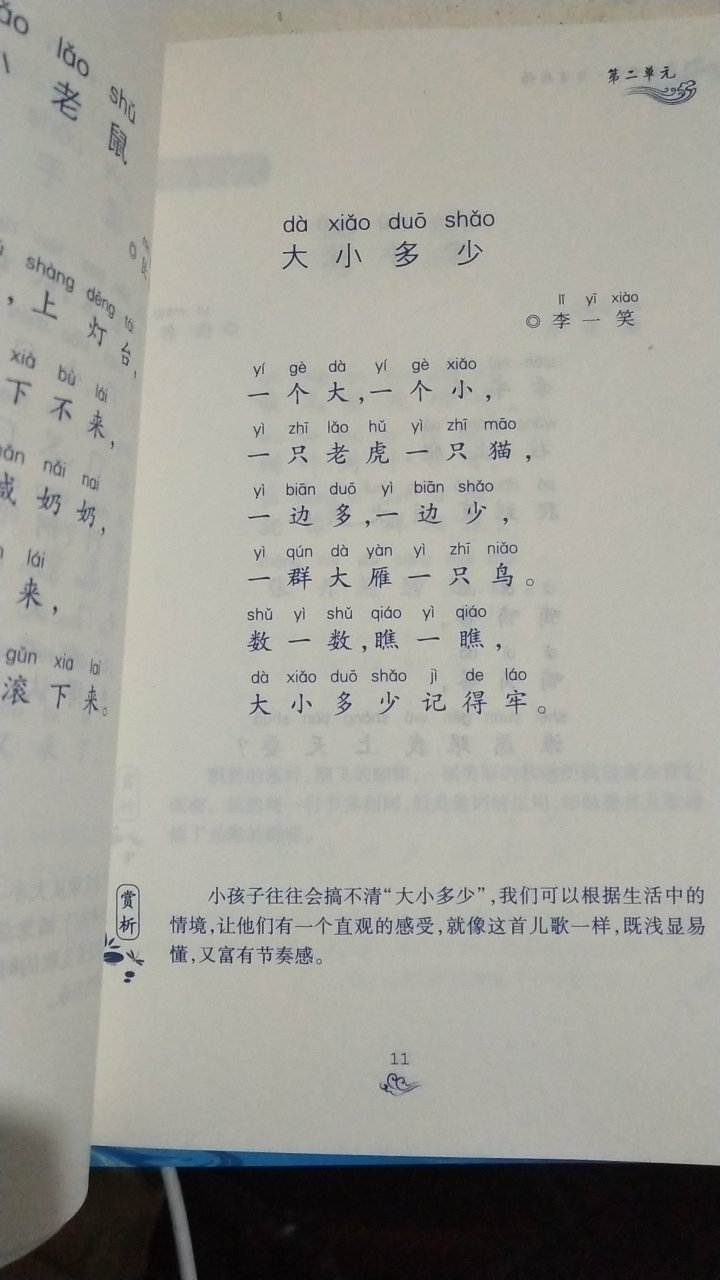 lǎo shǔ
老 鼠
shàng dēng tái
，上 灯 台，
xià bù lái
下 不 来，
nǎi nai
奶 奶，
lái
来，
gǔn xia lai
滚 下 来。
第二单元
dà xiǎo duō shǎo
大 小 多 少
lǐ yī xiào
◎ 李 一 笑
yí gè dà yí gè xiǎo
一 个 大，一 个 小，
yì zhī lǎo hǔ yì zhī māo
一 只 老 虎 一 只 猫，
yì biān duō yì biān shǎo
一 边 多，一 边 少，
yì qún dà yàn yì zhī niǎo
一 群 大 雁 一 只 鸟。
shǔ yì shǔ qiáo yì qiáo
数 一 数，瞧 一 瞧，
dà xiǎo duō shǎo jì de láo
大 小 多 少 记 得 牢。
赏析
小孩子往往会搞不清“大小多少”，我们可以根据生活中的
情境，让他们有一个直观的感受，就像这首儿歌一样，既浅显易
懂，又富有节奏感。
11